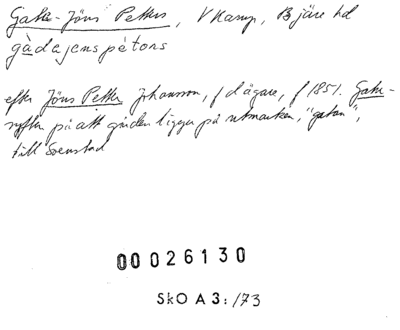 Gate-Jöns Petters, V Karup, Bjäre hd
gàdajenspètors
efter Jöns Petter Johansson, f d ägare, f 1851. Gate-
syftar på att gården ligger på utmarken, "gatan",
till Svenstad
00026130
SkO A3:/73